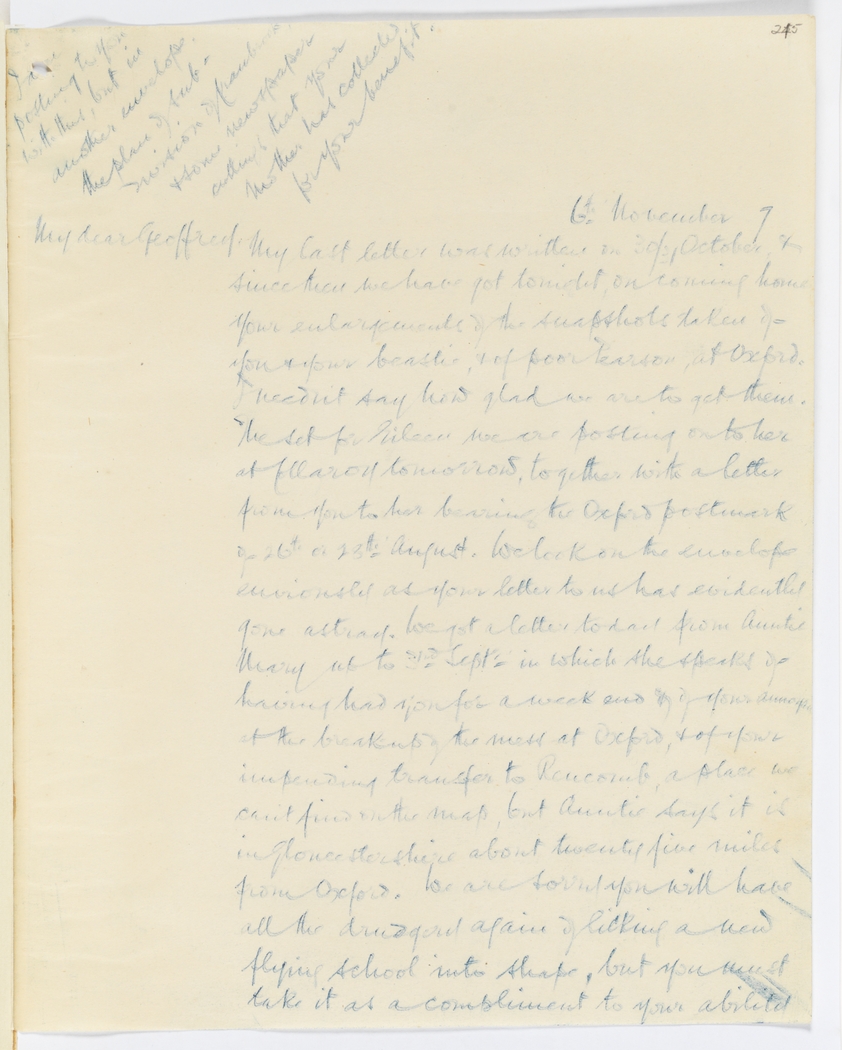 245
I am
posting to you
with this, but in
another envelope
the plan of sub-
division of
& some newspaper
cuttings that your
Mother has collected
for your benefit.
6th November 7
My dear Geoffrey. My last letter was written on 30/31 October, &
since then we have got tonight, on coming home
your enlargements of the snapshots taken of
you & your beastie, & of poor Pearson, at Oxford.
I needn't say how glad we are to get them.
The set for Eileen we are posting on to her
at tomorrow, together with a letter
from you to her bearing the Oxford postmark
of 26th or 28th August. We look on the envelope
enviously as your letter to us has evidently
gone astray. We got a letter today from Auntie
Mary up to 3rd Septr in which she speaks of
having had you for a week end & of your
at the breakup of the mess at Oxford, & of your
impending transfer to Rencomb, a place we
can't find on the map, but Auntie says it is
in Gloucestershire about twenty five miles
from Oxford. We are sorry you will have
all the drudgery again of licking a new
flying school into shape, but you must
take it as a compliment to your ability